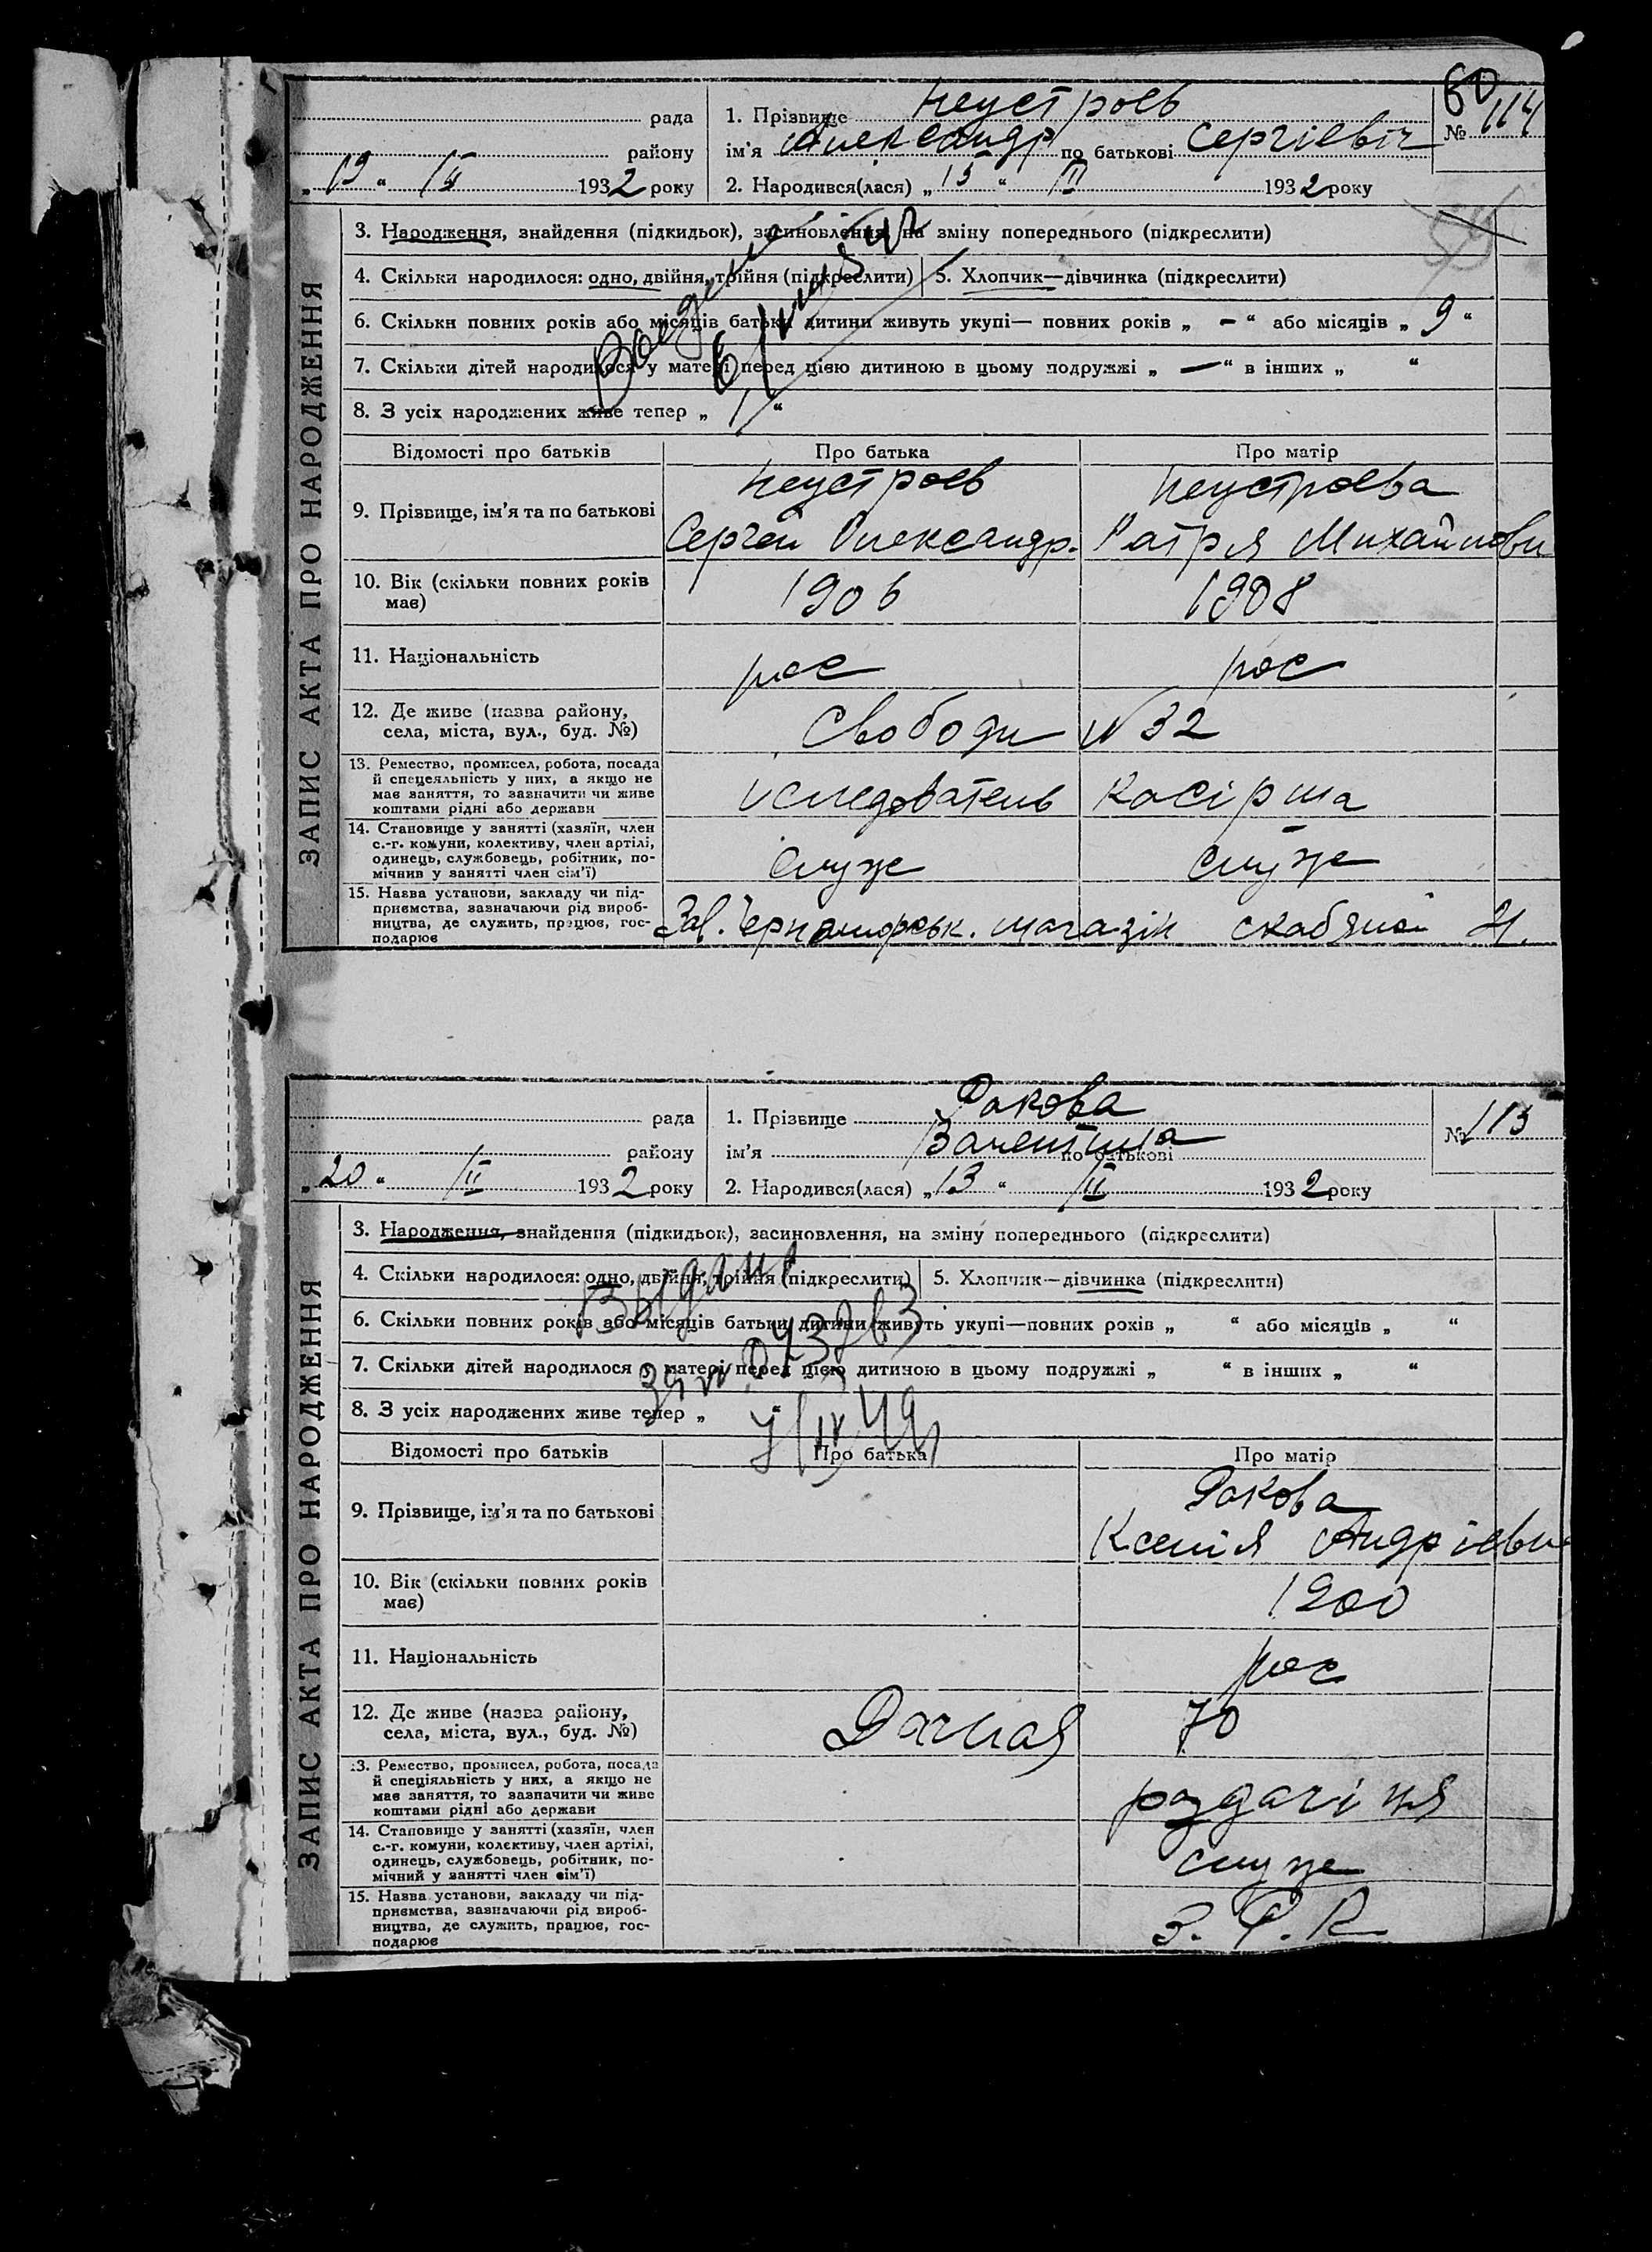 60
рада
1. Прізвище Неустроев
№ 114
району
ім'я Александр по батькові Сергієвіч
„19“ II 1932 року
2. Народився(лася) „15“ II 1932 року
ЗАПИС АКТА ПРО НАРОДЖЕННЯ
3. Народження, знайдення (підкидьок), засиновлення, на зміну попереднього (підкреслити)
4. Скільки народилося: одно, двійня, трійня (підкреслити)
5. Хлопчик—дівчинка (підкреслити)
6. Скільки повних років або місяців батьки дитини живуть укупі— повних років „ – “ або місяців „ 9 “
7. Скільки дітей народилося у матері перед цією дитиною в цьому подружжі „ — “ в інших „ “
8. З усіх народжених живе тепер „ 1 “
Відомості про батьків
Про батька
Про матір
9. Прізвище, ім'я та по батькові
Неустроев
Сергей Олександр.
Неустроева
Михайловн
10. Вік (скільки повних років
має)
1906
1908
11. Національність
рос
рос
12. Де живе (назва району,
села, міста, вул., буд. №)
Свободи N 32
13. Ремество, промисел, робота, посада
й спецеяльність у них, а якщо не
має заняття, то зазначити чи живе
коштами рідні або держави
Касірша
14. Становище у занятті (хазяїн, член
с.-г. комуни, колективу, член артілі,
одинець, службовець, робітник, по-
мічнив у занятті член сім'ї)
служе
служе
15. Назва установи, закладу чи під-
приємства, зазначаючи рід вироб-
ництва, де служить, працює, гос-
подарює
магазін
рада
1. Прізвище Ракова
№ 115
району
ім'я Валентина по батькові
„20“ II 1932 року
2. Народився(лася) „13“ II 1932 року
ЗАПИС АКТА ПРО НАРОДЖЕННЯ
3. Народження, знайдення (підкидьок), засиновлення, на зміну попереднього (підкреслити)
4. Скільки народилося: одно, двійня, трійня (підкреслити)
5. Хлопчик—дівчинка (підкреслити)
Выдано
6. Скільки повних років або місяців батьки дитини живуть укупі—повних рохів „ “ або місяців „ “
7. Скільки дітей народилося у матері перед цією дитиною в цьому подружжі „ “ в інших „ “
8. З усіх народжених живе тепер „ “
7/IV 49
Відомості про батьків
Про батька
Про матір
9. Прізвище, ім'я та по батькові
Ракова
Ксенія Андрієвн
10. Вік (скільки повних років
має)
1900
11. Національність
рос
12. Де живе (назва району,
села, міста, вул., буд. №)
Дачная 70
13. Ремество, промисел, робота, посада
й спеціяльність у них, а якщо не
має заняття, то зазначити чи живе
коштами рідні або держави
роздачіця
14. Становище у занятті (хазяїн, член
с.-г. комуни, колективу, член артілі,
одинець, службовець, робітник, по-
мічний у занятті член сім'ї)
служе
15. Назва установи, закладу чи під-
приємства, зазначаючи рід вироб-
ництва, де служить, працює, гос-
подарює
З. Р. К